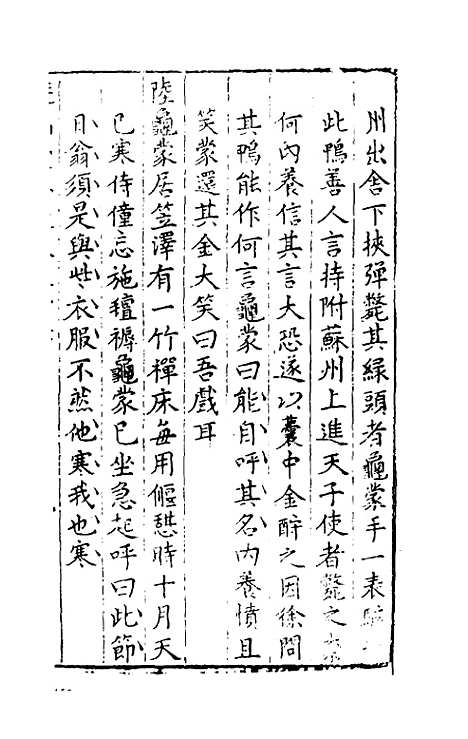 州出舍下挾彈斃其綠頭者龜蒙手一表
此鴨善人言持附蘇州上進天子使者斃之
何内養信其言大恐遂以囊中金酧之因徐問
其鴨能作何言龜蒙曰能自呼其名内養憤且
笑蒙還其金大笑曰吾戲耳
陸龜蒙居笠澤有一竹禪床每用偃憇時十月天
已寒侍僮忘施氊褥龜蒙已坐急起呼曰此節
日翁須是與些衣服不然他寒我也寒